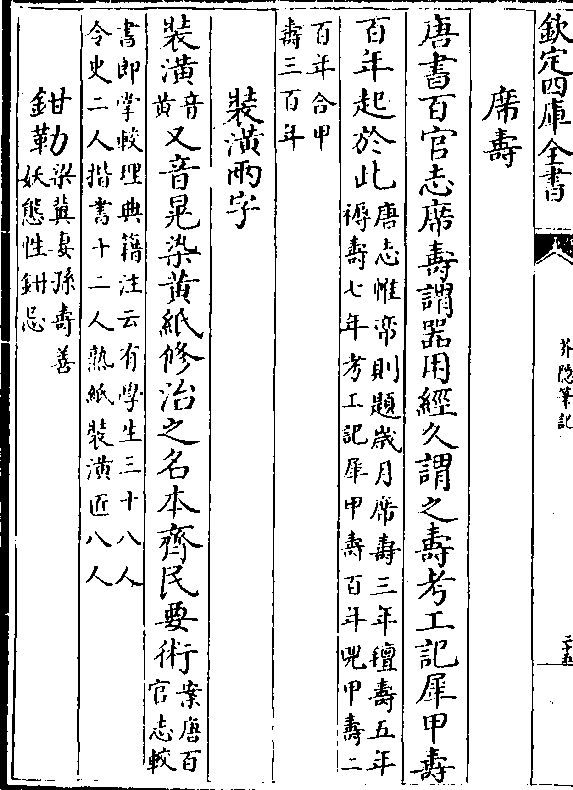 欽定四庫全書
芥隱筆記
二十五
席壽
唐書百官志席壽謂器用經久謂之壽考工記犀甲壽
百年起於此唐志惟帟則題歲月席壽三年氊壽五年
褥壽七年考工記犀甲壽百年兕甲壽二
百年合甲
壽三百年
裝潢兩字
裝潢音
黄又音晃染黄紙修治之名本齊民要術案唐百
官志較
書郎掌較理典籍注云有學生三十八人
令史二人揩書十二人熟紙裝潢匠八人
鉗勒梁冀妻孫壽善
妖態性鉗忌